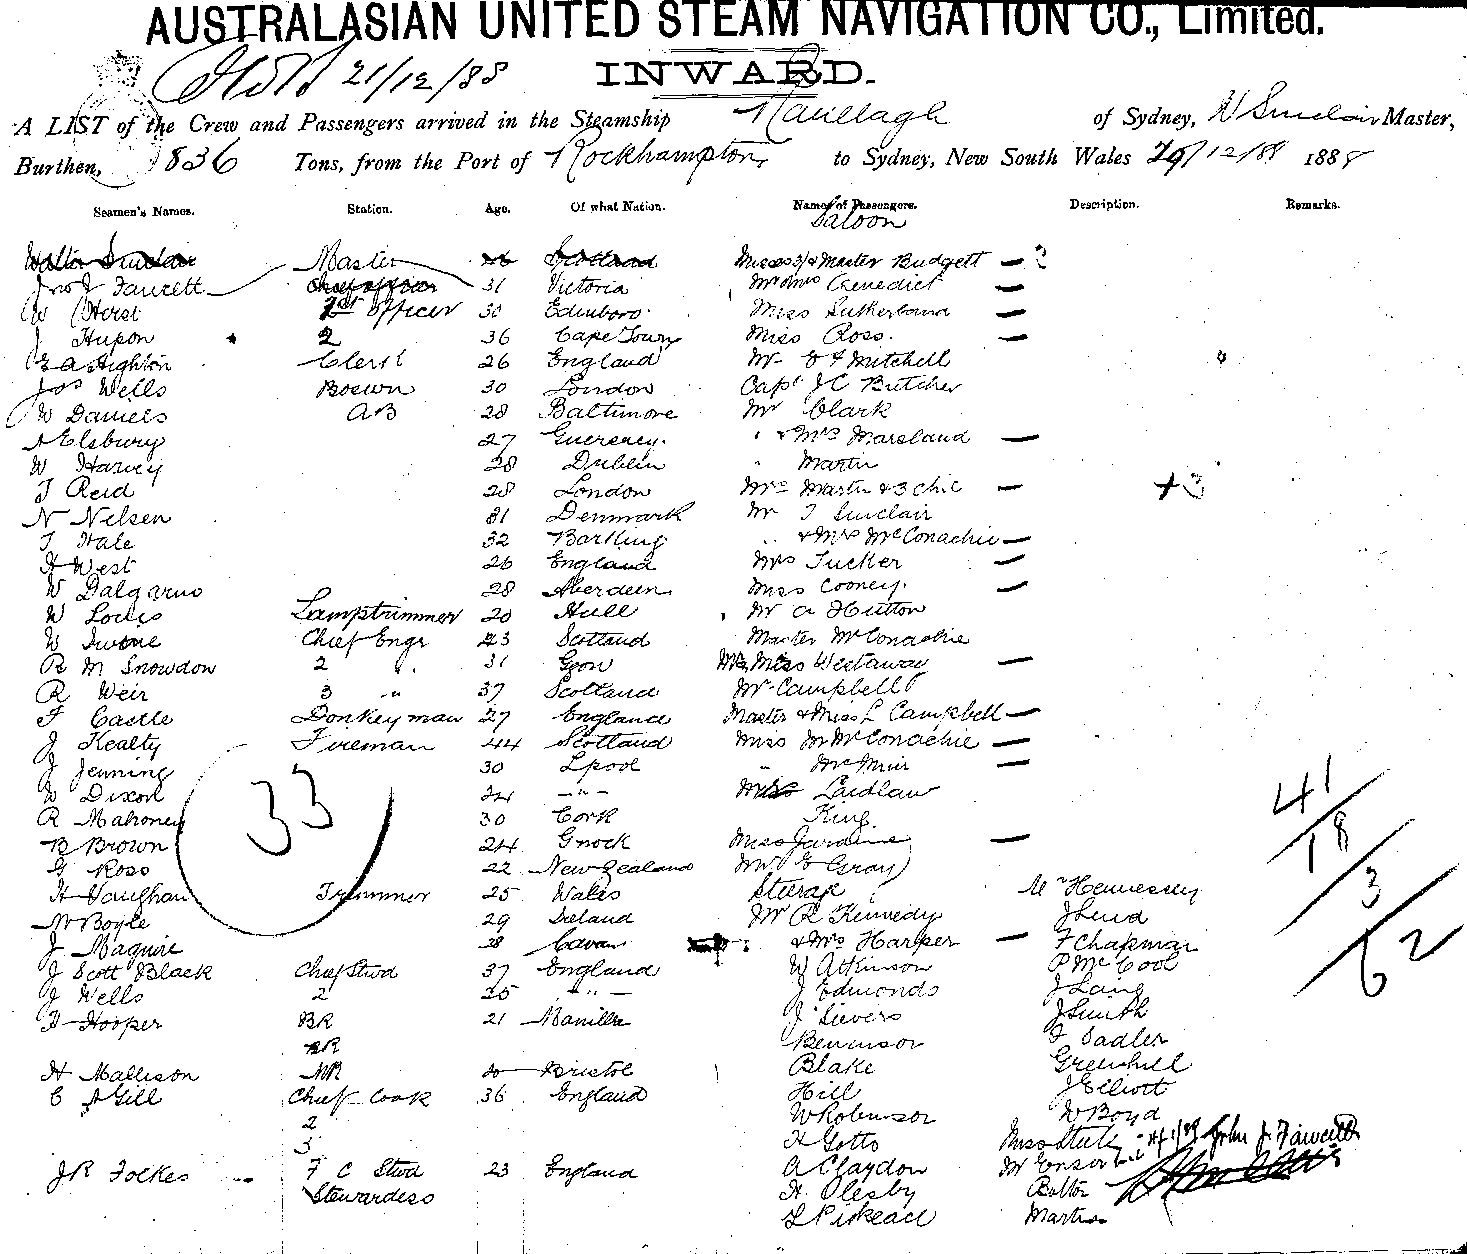 AUSTRALASIAN UNITED STEAM NAVIGATION CO., Limited.
21/12/88 INWARD.
A LIST of the Crew and Passengers arrived in the Steamship of Sydney, W Sinclair Master,
Burthen, 836 Tons, from the Port of Rockhampton, to Sydney, New South Wales 29/12/88 1888
Seamen's Names. Station. Age. Of what Nation. Names of Passengers. Description. Remarks.
Saloon
Walter Sinclair Master Scotland Master Budgett
Jno J Fawcett Chief officer 31 Victoria Mr & Mrs Benedict
W Hirst 1st officer 30 Edinboro Miss Sutherland
J Hupon 2 36 Cape Town Miss Ross
E A Highton Clerk 26 England Mr Mitchell
Jos Wells Boswn 30 London Capt J C Butcher
W Daniels AB 28 Baltimore Mr Clark
A Elsbury 27 Guernsey & Mrs Marsland
W Harvey 28 Dublin Martin
T Reid 28 London Mrs Martin & 3 chil + 3
N Nelsen 31 Denmark Mr T Sinclair
T Hale 32 Barking & Mrs McConachie
H West 26 England Mrs Tucker
W Dalgarno 28 Aberdeen Miss Cooney
W Lockis Lamptrimmer 20 Hull Mr A Hutton
W Irvone Chief Engr 43 Scotland Master McConachie
R M Snowdon 2 " 31 Miss Westaway
R Weir 3 " 37 Scotland Mr Campbell
F Castle Donkeyman 27 England Master & Miss L Campbell
J Kealty Fireman 44 Scotland Miss M McConachie
J Jenning 30 Lpool " McMuir
W Dixon 24 - " - Laidlaw
R Mahoney 30 Cork King
B Brown 24 Gnock Miss Jardine
G Ross 22 New Zealand Mr G Gray
33
41
18
3
62
H Vaughan Trimmer 25 Wales Steerage Mr Hennessey
W Boyle 29 Ireland Mr R Kennedy J Lund
J Maguire 28 Cavan & Mrs Harper F Chapman
J Scott Black Chief Stwd 37 England W Atkinson P McCool
J Wells 2 25 " J Edmonds J Laing
H Hooper BR 21 Manilla J Sievers J Smith
BR Beninson J Sadler
H Mallison MR Bristol Blake Greenhill
C A Gill Chief Cook 36 England Hill J Elliott
2 W Robinson W Boyd
3 H Gotto Miss Steele John J Fawcett
J R Folkes F C Stwd 23 England A Claydon Mr Ensor
Stewardess H Olesby Bolton
Martin